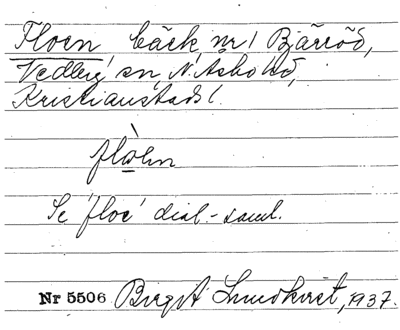 Floen bäck nr 1 Bjärröd,
Vedby sn, N. Åsbo hd,
Kristianstads l.
flòhn
Se 'floe' dial.-saml.
Nr 5506 Birgit Lundkvist, 1937.